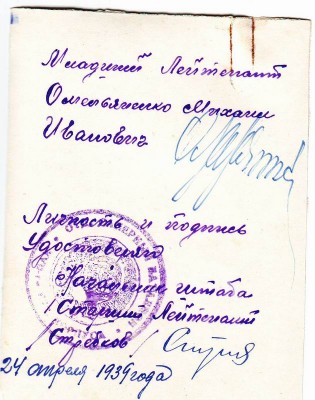 Младший Лейтенант
Омельяненко Михаил
Иванович
Личность и подпись
Удостоверяю
Начальник штаба
/Старший Лейтенант
/Стрелков/
24 апреля 1939 года